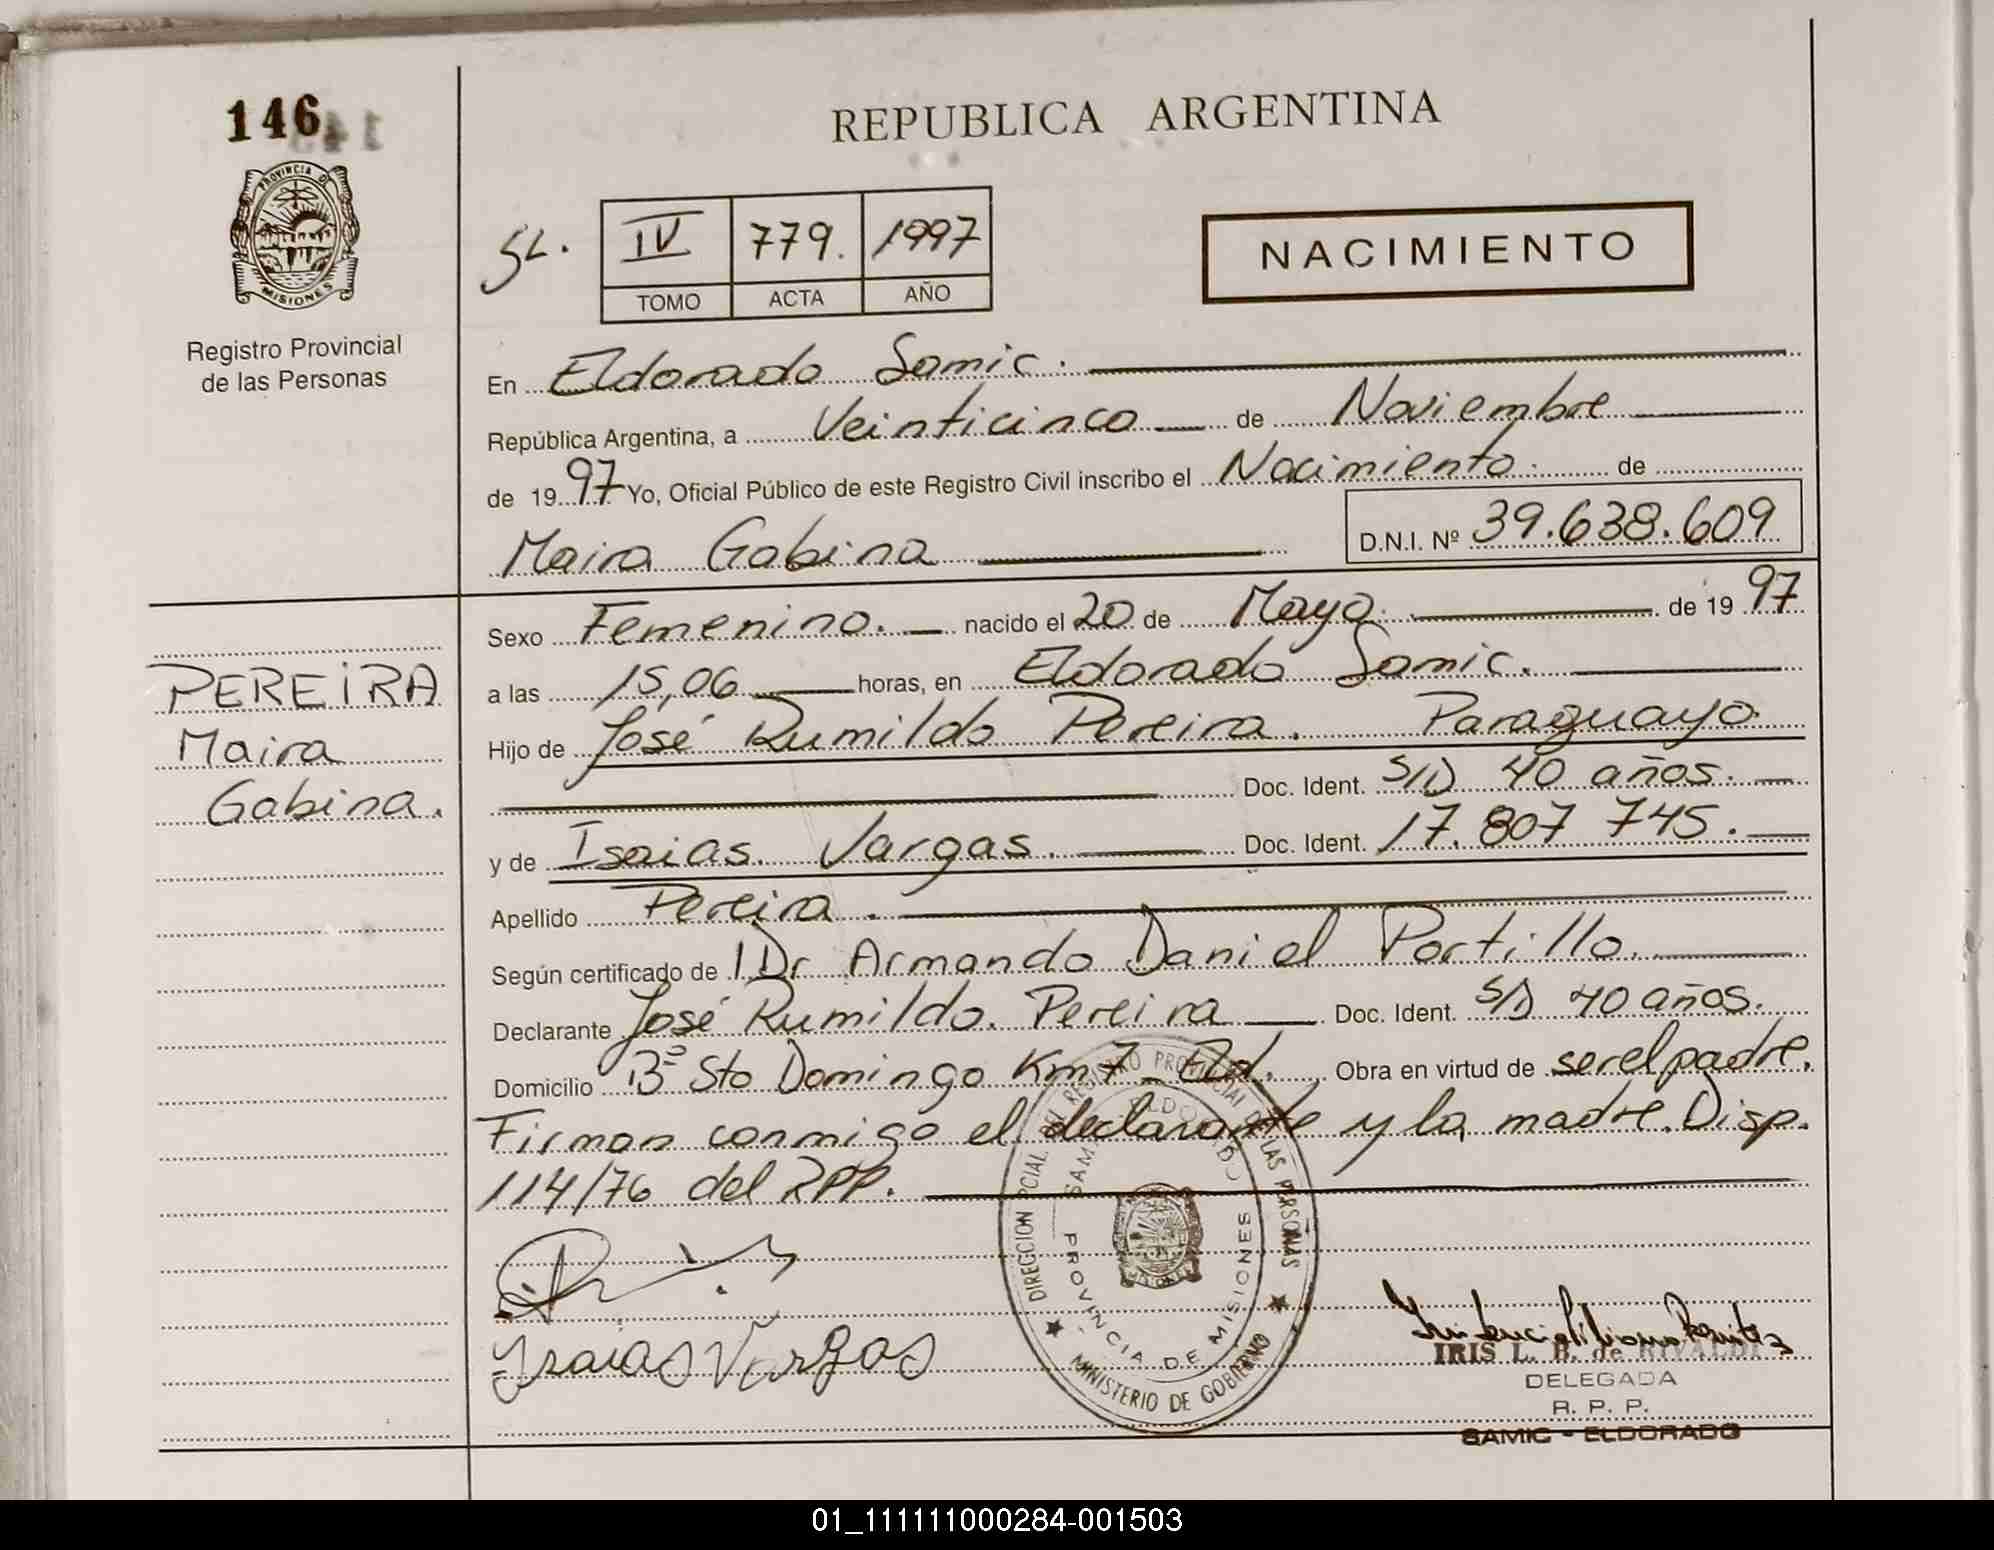 146
PROVINCIA DE
MISIONES
Registro Provincial
de las Personas
REPUBLICA ARGENTINA
SL. IV 779. 1997
TOMO ACTA AÑO
NACIMIENTO
En Eldorado Samic.
República Argentina, a Veinticinco de Noviembre
de 1997 Yo, Oficial Público de este Registro Civil inscribo el Nacimiento. de
Maira Gabina D.N.I. Nº 39.638.609
PEREIRA
Maira
Gabina.
Sexo Femenino. nacido el 20 de Mayo. de 1997
a las 15,06 horas, en Eldorado Samic.
Hijo de José Rumildo Pereira. Paraguayo.
Doc. Ident. S/D 40 años.
y de Isaias Vargas. Doc. Ident. 17.807 745.
Apellido Pereira.
Según certificado de Dr Armando Daniel Portillo.
Declarante José Rumildo Pereira Doc. Ident. S/D 40 años.
Domicilio Bº Sto Domingo Km 7 - Eld. Obra en virtud de ser el padre.
Firman conmigo el declarante y la madre. Disp.
114/76 del RPP.
DIRECCION PCIAL. DEL REGISTRO PROVINCIAL DE LAS PERSONAS
SAMIC ELDORADO
PROVINCIA DE MISIONES
MINISTERIO DE GOBIERNO
Isaias Vargas
IRIS L. B. de RIVALDI
DELEGADA
R. P. P.
SAMIC - ELDORADO
01_111111000284-001503